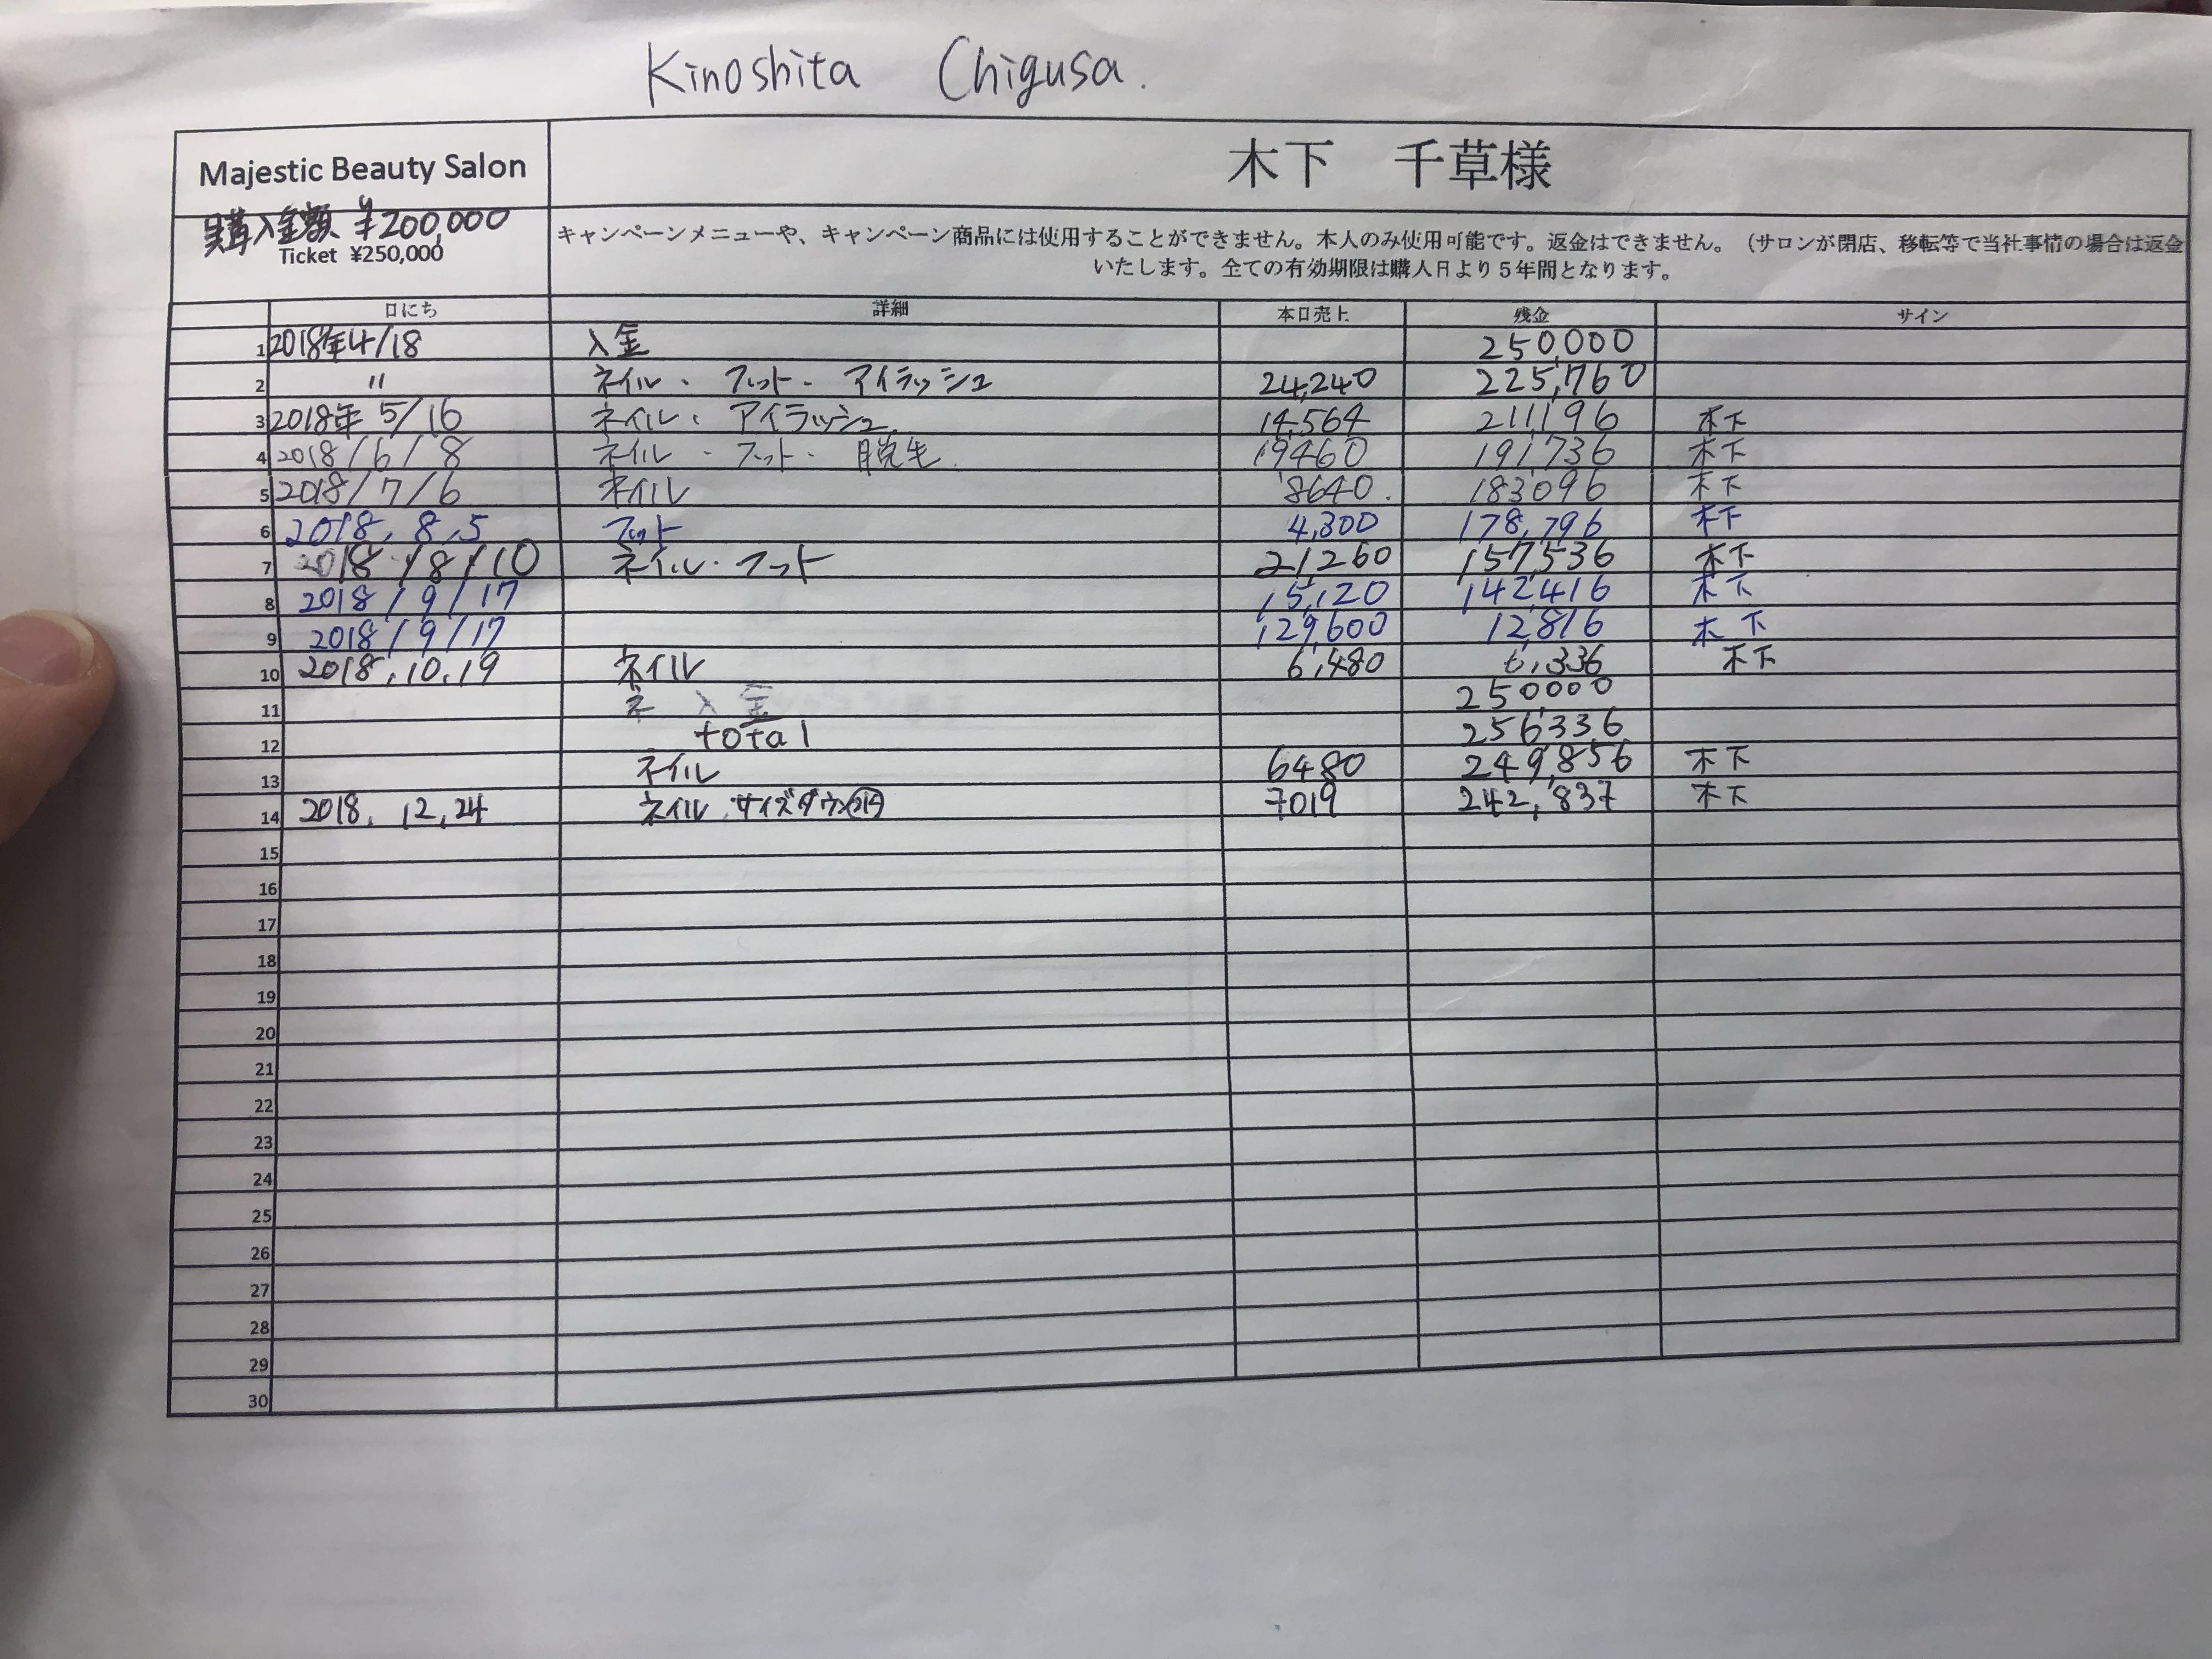 Kinoshita Chigusa.
Majestic Beauty Salon
木下 千草様
購入金額 ¥200,000
Ticket ¥250,000
キャンペーンメニューや、キャンペーン商品には使用することができません。本人のみ使用可能です。返金はできません。（サロンが閉店、移転等で当社事情の場合は返金
いたします。全ての有効期限は購入日より５年間となります。
日にち 詳細 本日売上 残金 サイン
1 2018年4/18 入金 250,000
2 〃 ネイル・フット・アイラッシュ 24,240 225,760
3 2018年 5/16 ネイル・アイラッシュ 14,564 211,196 木下
4 2018/6/8 ネイル・フット・脱毛 19460 191,736 木下
5 2018/7/6 ネイル 8640. 183,096 木下
6 2018.8.5 フット 4,300 178,796 木下
7 2018/8/10 ネイル・フット 21,260 157,536 木下
8 2018/9/17 15,120 142,416 木下
9 2018/9/17 129,600 12,816 木下
10 2018.10.19 ネイル 6,480 6,336 木下
11 ネ 入金 250,000
12 total 256,336
13 ネイル 6480 249,856 木下
14 2018.12.24 ネイル サイズダウン 7019 242,837 木下
15
16
17
18
19
20
21
22
23
24
25
26
27
28
29
30